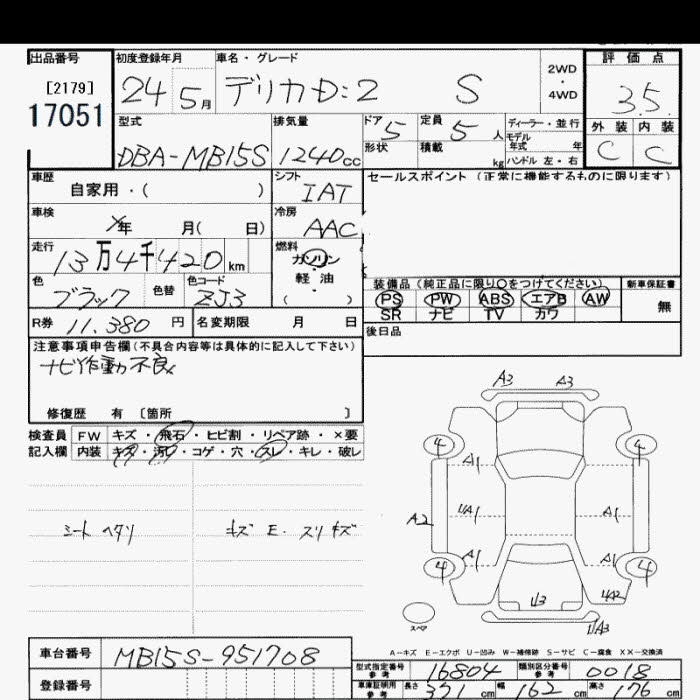 出品番号 初度登録年月 車名・グレード 2WD ・ 4WD 評価点
[2179] 24 5月 デリカD:2 S 3.5
17051
型式 排気量 ドア 5 定員 5人 ディーラー・並行 外装 内装
モデル年式 年
DBA-MB15S 1240cc 形状 積載 kg ハンドル 左・右 C C
車歴 シフト セールスポイント (正常に機能するものに限ります)
自家用・( ) IAT
車検 年 月( 日) 冷房 AAC
走行 13万4千420km 燃料 ガソリン
軽・油
( )
色 ブラック 色替 色コード ZJ3
装備品 (純正品に限り○をつけてください) 新車保証書
PS PW ABS エアB AW 無
SR ナビ TV カワ
R券 11.380円 名変期限 月 日 後日品
注意事項申告欄(不具合内容等は具体的に記入して下さい)
ナビ作動不良
修復歴 有 〔箇所 〕
検査員 FW キズ・飛石・ヒビ割・リペア跡・×要
記入欄 内装 キズ・汚れ・コゲ・穴・スレ・キレ・破レ
シート ヘタリ キズ E. スリキズ
A3 A3
4 4
A1
A2 UA1 A1
A1 A1
4 4
U3 UA2
UA3
スペア
A-キズ E-エクボ U-凹み W-補修跡 S-サビ C-腐食 XX-交換済
車台番号 MB15S-951708
型式指定番号 参考 16804 類別区分番号 参考 0018
登録番号 車庫証明用 参考 長さ 371cm 幅 162cm 高さ 176cm